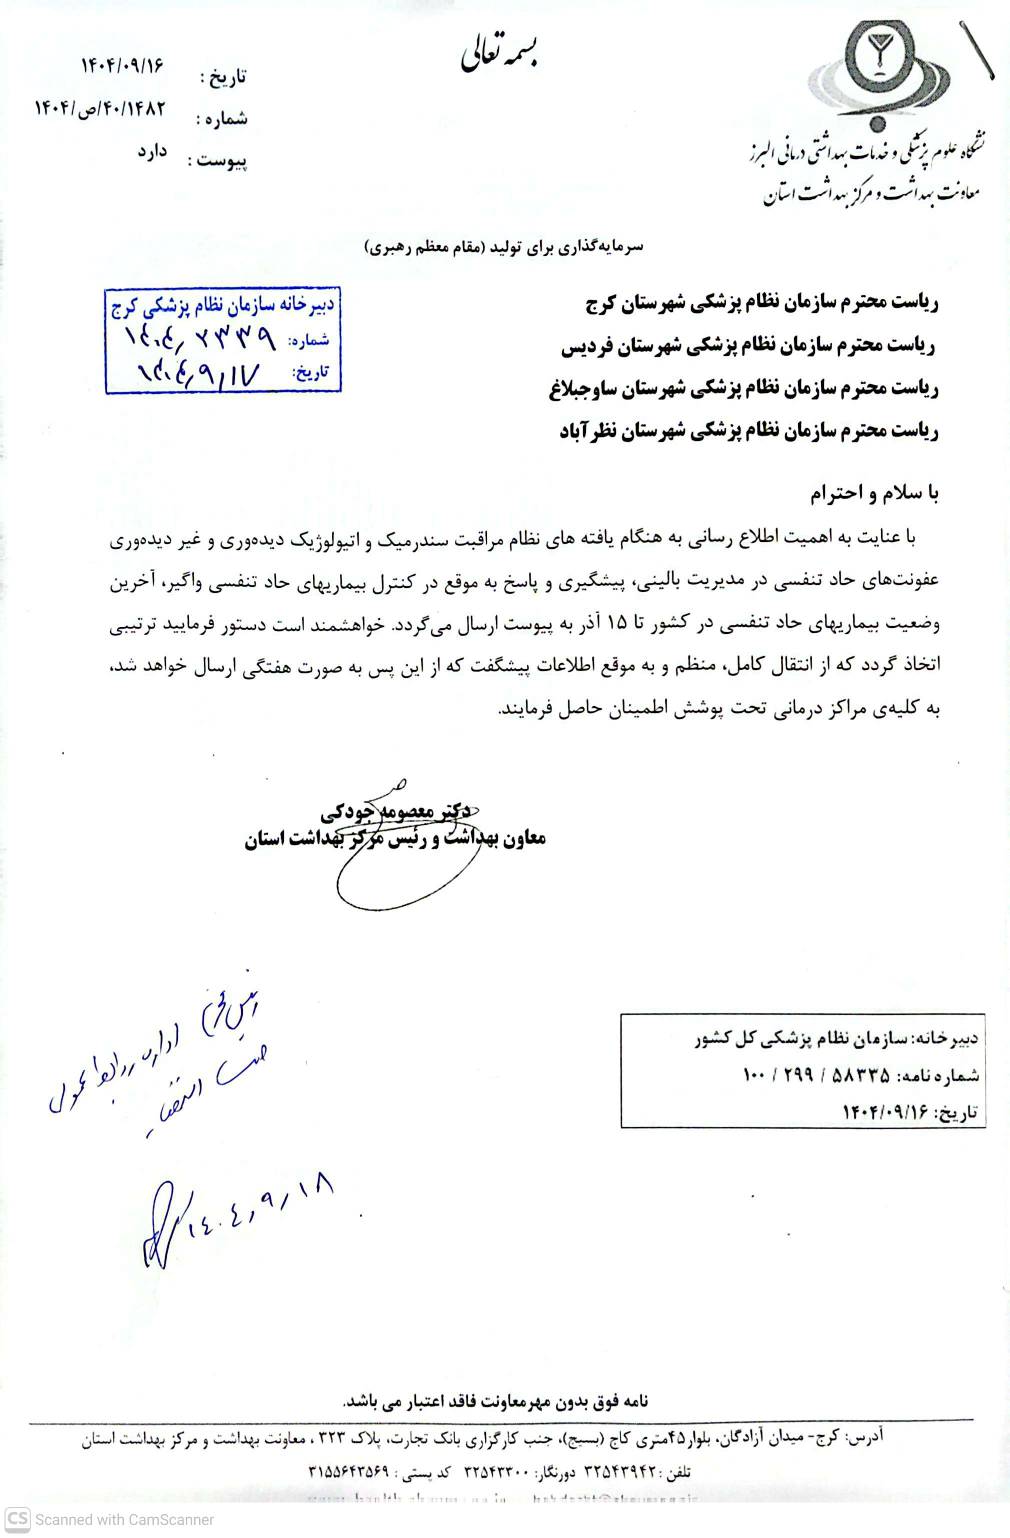 بسمه تعالی
تاریخ : ۱۴۰۴/۰۹/۱۶
شماره : ۴۰/۱۴۸۲/ص/۱۴۰۴
پیوست : دارد
نشگاه علوم پزشکی و خدمات بهداشتی درمانی البرز
معاونت بهداشت و مرکز بهداشت استان
سرمایه‌گذاری برای تولید (مقام معظم رهبری)
دبیرخانه سازمان نظام پزشکی کرج
شماره: ۱۴۰۴/۲۳۳۹
تاریخ: ۱۴۰۴/۹/۱۷
ریاست محترم سازمان نظام پزشکی شهرستان کرج
ریاست محترم سازمان نظام پزشکی شهرستان فردیس
ریاست محترم سازمان نظام پزشکی شهرستان ساوجبلاغ
ریاست محترم سازمان نظام پزشکی شهرستان نظرآباد
با سلام و احترام
با عنایت به اهمیت اطلاع رسانی به هنگام یافته های نظام مراقبت سندرمیک و اتیولوژیک دیده‌وری و غیر دیده‌وری
عفونت‌های حاد تنفسی در مدیریت بالینی، پیشگیری و پاسخ به موقع در کنترل بیماریهای حاد تنفسی واگیر، آخرین
وضعیت بیماریهای حاد تنفسی در کشور تا ۱۵ آذر به پیوست ارسال می‌گردد. خواهشمند است دستور فرمایید ترتیبی
اتخاذ گردد که از انتقال کامل، منظم و به موقع اطلاعات پیشگفت که از این پس به صورت هفتگی ارسال خواهد شد،
به کلیه‌ی مراکز درمانی تحت پوشش اطمینان حاصل فرمایند.
دکتر معصومه جودکی
معاون بهداشت و رئیس مرکز بهداشت استان
اداره روابط عمومی
۱۴۰۴/۹/۱۸
دبیرخانه: سازمان نظام پزشکی کل کشور
شماره نامه: ۵۸۳۳۵ / ۲۹۹ / ۱۰۰
تاریخ: ۱۴۰۴/۰۹/۱۶
نامه فوق بدون مهرمعاونت فاقد اعتبار می باشد.
آدرس: کرج- میدان آزادگان، بلوار۴۵متری کاج (بسیج)، جنب کارگزاری بانک تجارت، پلاک ۳۲۳ ، معاونت بهداشت و مرکز بهداشت استان
تلفن : ۳۲۵۴۳۹۴۲ دورنگار: ۳۲۵۴۳۳۰۰ کد پستی : ۳۱۵۵۶۴۳۵۶۹
CS Scanned with CamScanner